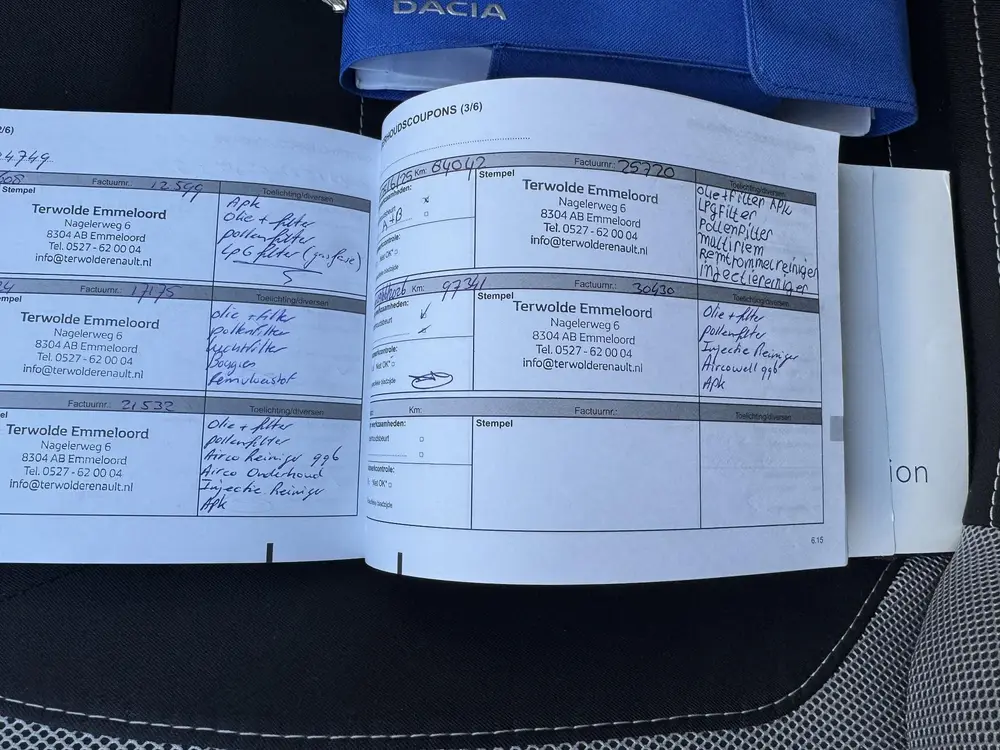 DACIA
2/6)
24749
Factuurnr. 12.599
Toelichting/diversen
Stempel
Terwolde Emmeloord
Nagelerweg 6
8304 AB Emmeloord
Tel. 0527 - 62 00 04
info@terwolderenault.nl
Apk
Olie + filter
pollenfilter
LPG filter (gasfase)
Factuurnr.: 17175
Toelichting/diversen
Terwolde Emmeloord
Nagelerweg 6
8304 AB Emmeloord
Tel. 0527 - 62 00 04
info@terwolderenault.nl
olie + filter
pollenfilter
Luchtfilter
Bougies
Remvloeistof
Factuurnr.: 21532
Toelichting/diversen
Terwolde Emmeloord
Nagelerweg 6
8304 AB Emmeloord
Tel. 0527 - 62 00 04
info@terwolderenault.nl
Olie + filter
pollenfilter
Airco Reiniger 996
Airco Onderhoud
Injectie Reiniger
Apk
HOUDSCOUPONS (3/6)
Km: 84042
Factuurnr.: 25720
Toelichting/diversen
Stempel
Terwolde Emmeloord
Nagelerweg 6
8304 AB Emmeloord
Tel. 0527 - 62 00 04
info@terwolderenault.nl
A+B
Olie+Filter APk
LPgFilter
PollenFilter
multiriem
Remtrommelreiniger
injectiereiniger
Km: 97341
Factuurnr.: 30430
Toelichting/diversen
Stempel
Terwolde Emmeloord
Nagelerweg 6
8304 AB Emmeloord
Tel. 0527 - 62 00 04
info@terwolderenault.nl
Olie + filter
pollenfilter
Injectie Reiniger
Aircowell 996
APk
Km:
Factuurnr.:
Toelichting/diversen
Stempel
6.15
ion